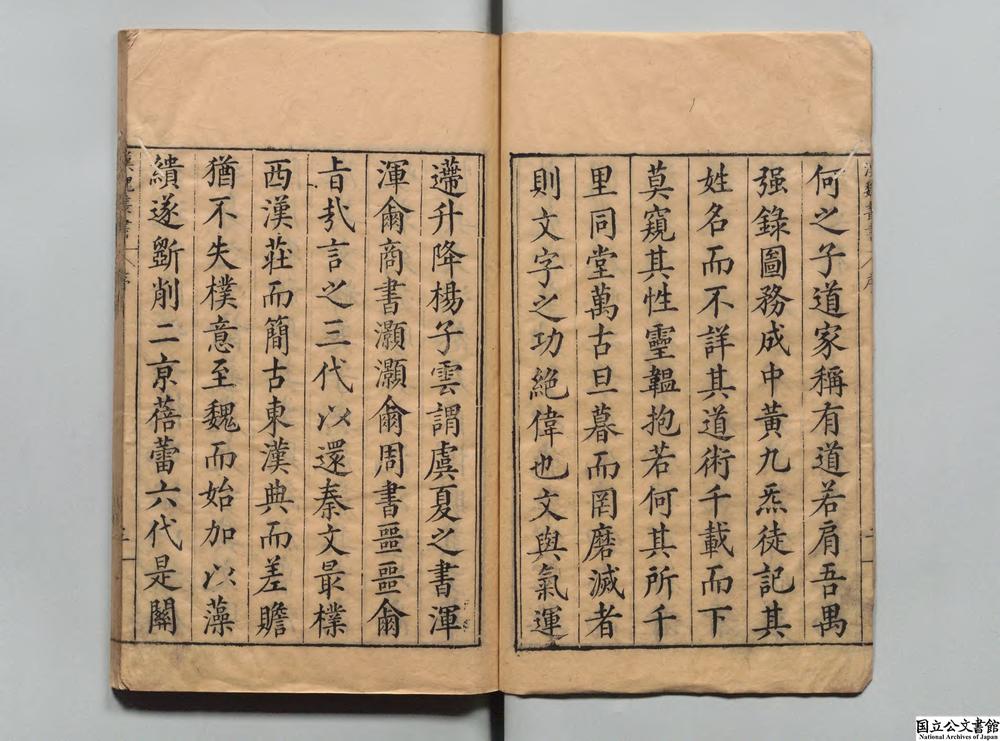 何之子道家稱有道若肩吾禺
强錄圖務成中黃九炁徒記其
姓名而不詳其道術千載而下
莫窺其性靈韞抱若何其所千
里同堂萬古旦暮而罔磨滅者
則文字之功絕偉也文與氣運
遰升降楊子雲謂虞夏之書渾
渾爾商書灝灝爾周書噩噩爾
旨哉言之三代以還秦文最樸
西漢莊而簡古東漢典而差贍
猶不失樸意至魏而始加以藻
繢遂斵削二京蓓蕾六代是關
漢魏叢書
序
国立公文書館
National Archives of Japan